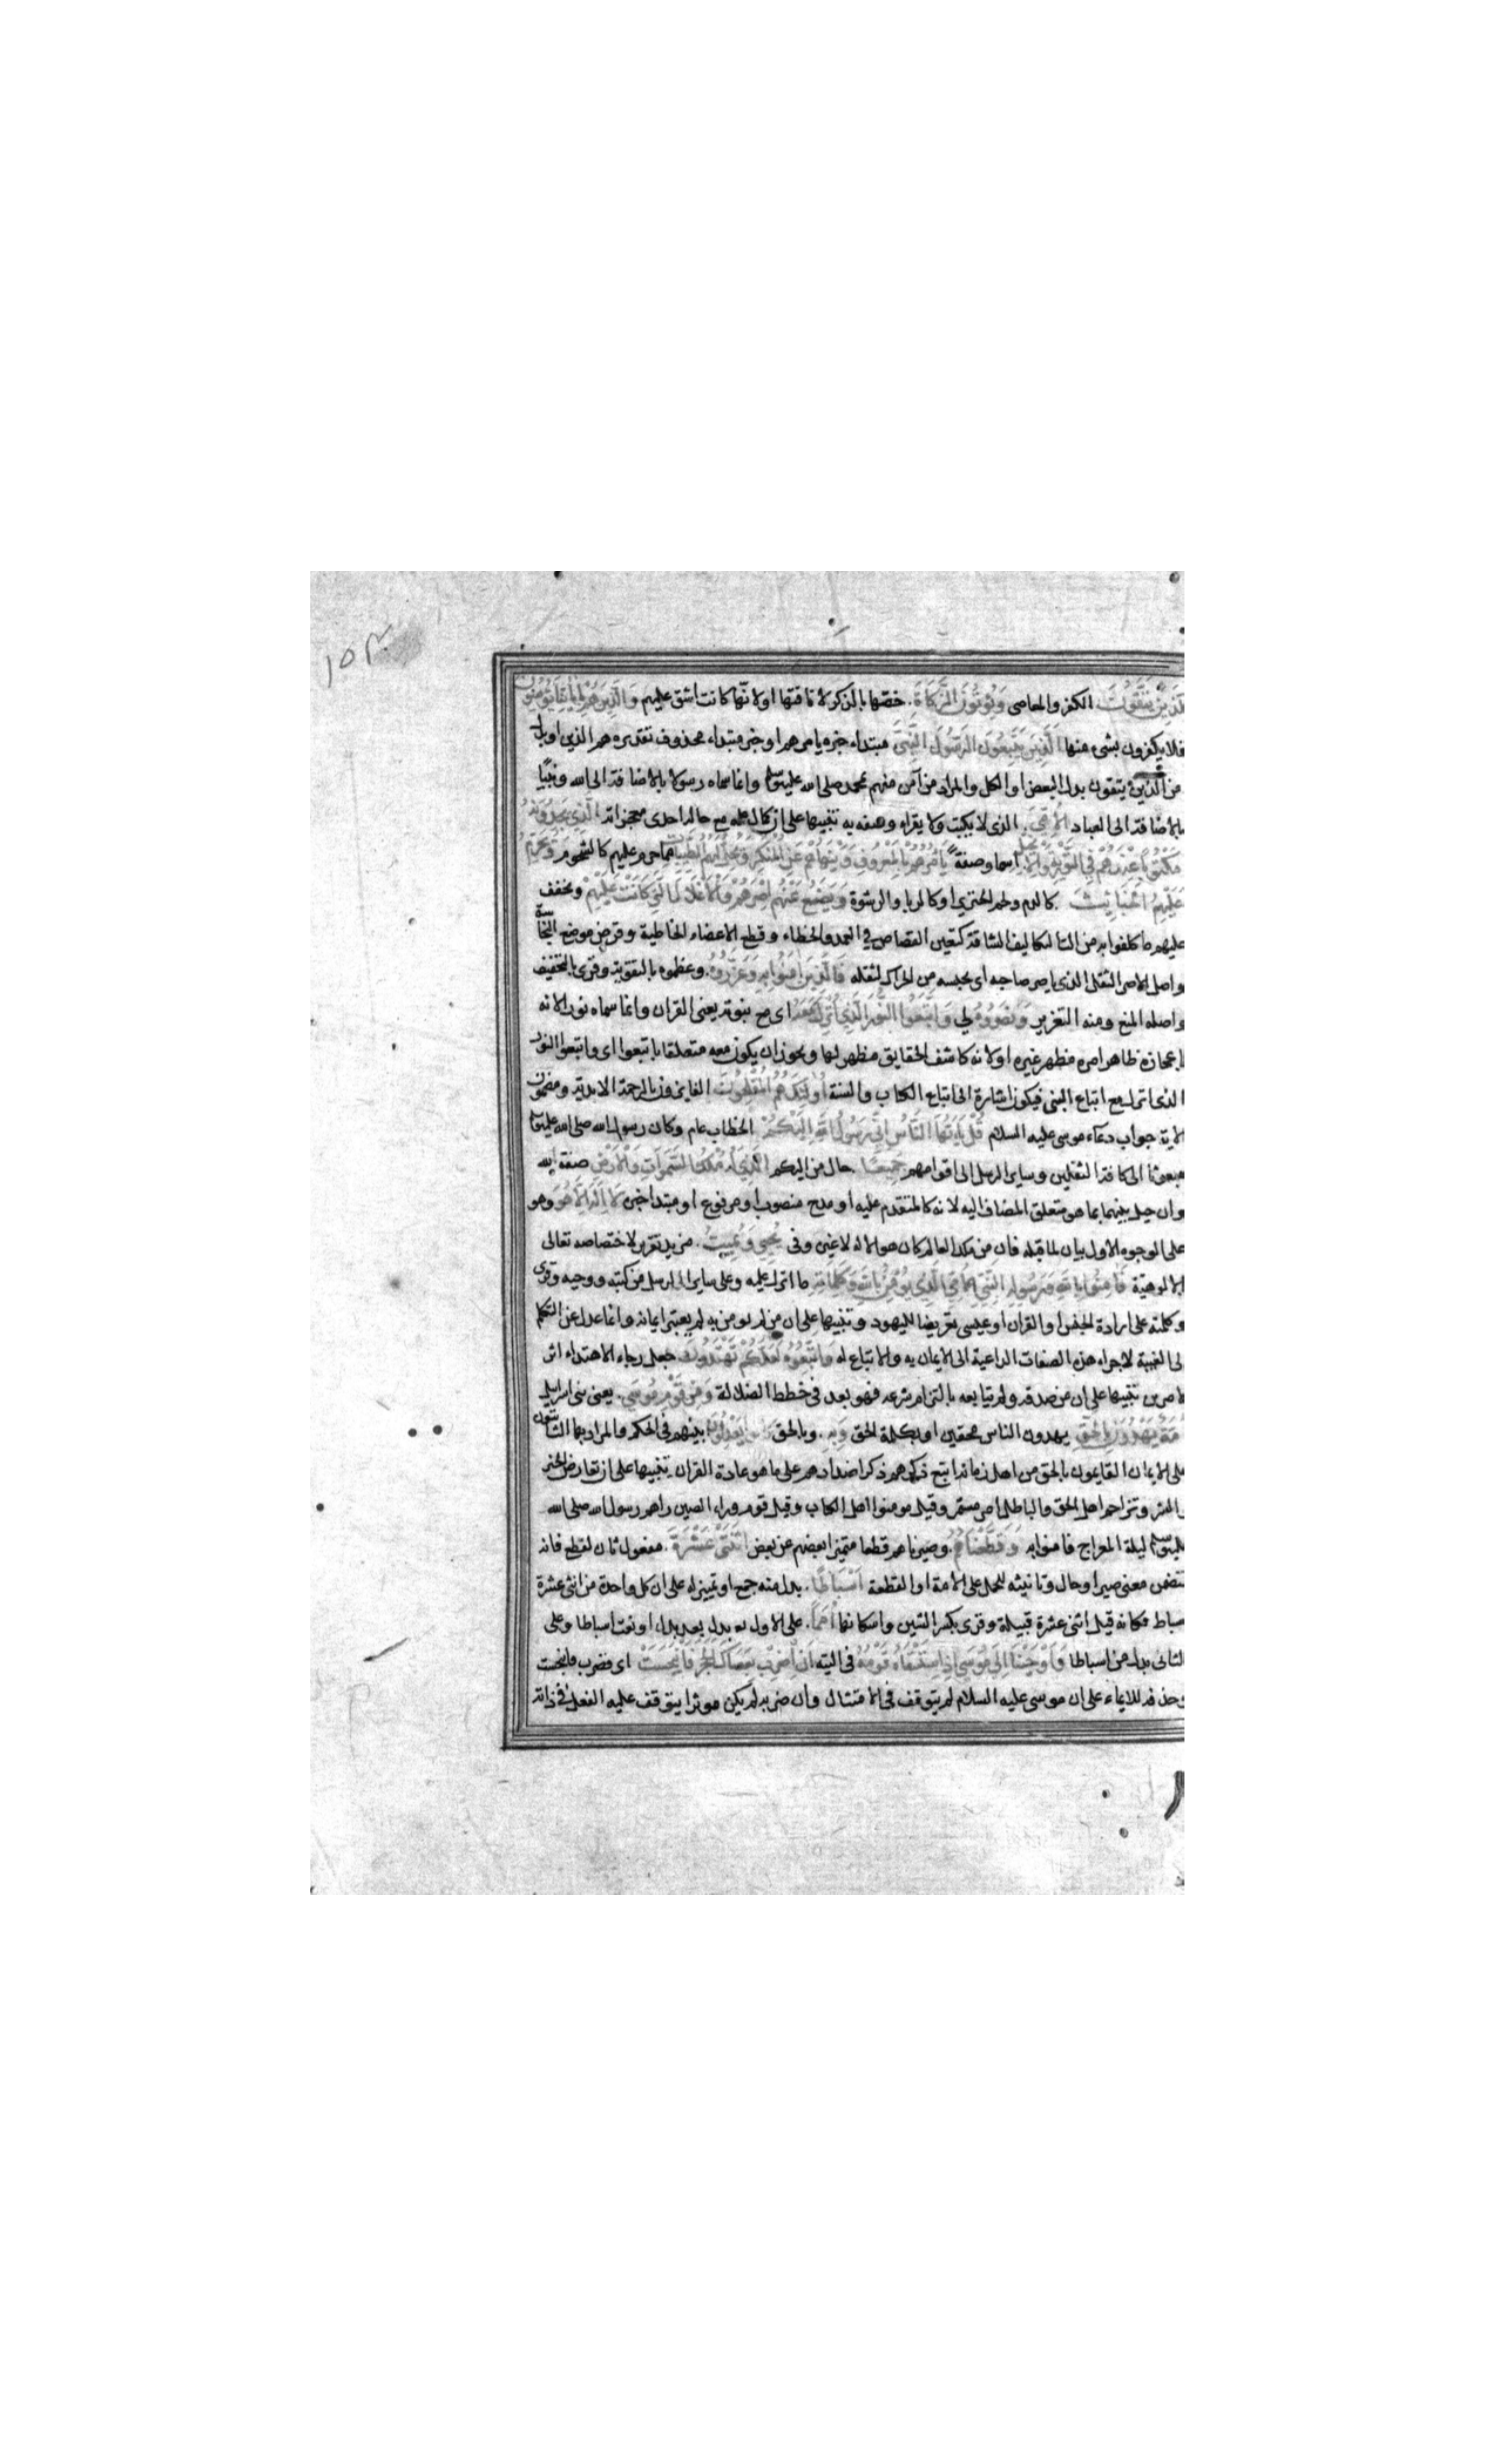 ١٥٣
للذين يتقون الكفر والمعاصى ويؤتون الزكاة خصها بالذكر لانافتها او لانها كانت اشق عليهم والذين هم باياتنا يؤمنون
فلا يكفرون بشىء منها الذين يتبعون الرسول النبى مبتداء خبره يامرهم او خبر مبتداء محذوف تقديره هم الذين او بدل
من الذين يتقون بدل البعض او الكل والمراد من آمن منهم بمحمد صلى الله عليه وسلم وانما سماه رسولا بالاضافة الى الله ونبيا
بالاضافة الى العباد الامى الذى لا يكتب ولا يقراء وصفه به تنبيها على ان كمال علمه مع حاله احدى معجزاته الذى يجدونه
مكتوبا عندهم فى التورية والانجيل اسما وصفة يامرهم بالمعروف وينهاهم عن المنكر ويحل لهم الطيبات مما حرم عليهم كالشحوم ويحرم
عليهم الخبائث كالدم ولحم الخنزير او كالربا والرشوة ويضع عنهم اصرهم والاغلال التى كانت عليهم ويخفف
عليهم ما كلفوا به من التكاليف الشاقة كتعين القصاص فى العمد والخطاء وقطع الاعضاء الخاطية وقرض موضع النجاسة
واصل الاصر الثقل الذى ياصر صاحبه اى يحبسه من الحراك لثقله فالذين امنوا به وعزروه وعظموه بالتقوية وقرى بالتخفيف
واصله المنع ومنه التعزير ونصروه لى واتبعوا النور الذى انزل معه اى مع نبوته يعنى القران وانما سماه نورا لانه
باعجازه ظاهر امره مظهر غيره او لانه كاشف الحقايق مظهر لها ويجوز ان يكون معه متعلقا باتبعوا اى واتبعوا النور
الذى انزل مع اتباع النبى فيكون اشارة الى اتباع الكتاب والسنة اولئك هم المفلحون الفايزون بالرحمة الابدية ومضمون
الاية جواب دعاء موسى عليه السلام قل يا ايها الناس انى رسول الله اليكم الخطاب عام وكان رسول الله صلى الله عليه وسلم
مبعوثا الى كافة الثقلين وساير الرسل الى اقوامهم جميعا حال من اليكم الذى له ملك السموات والارض صفة لله
وان حيل بينهما بما هو متعلق المضاف اليه لانه كالمتقدم عليه او مدح منصوب او مرفوع او مبتدا خبره لا اله الا هو وهو
على الوجوه الاول بيان لما قبله فان من ملك العالم كان هو الاله لا غيره وفى يحيى ويميت مزيد تقرير لاختصاصه تعالى
بالالوهية فامنوا بالله ورسوله النبى الامى الذى يؤمن بالله وكلماته ما انزل عليه وعلى ساير الرسل من كتبه ووحيه وقرى
وكلمته على ارادة الجنس او القران او عيسى تعريضا لليهود وتنبيها على ان من لم يومن به لم يعتبر ايمانه وانما عدل عن التكلم
الى الغيبة لاجراء هذه الصفات الداعية الى الايمان به والاتباع له واتبعوه لعلكم تهتدون جعل رجاء الاهتداء اثر
الامرين تنبيها على ان من صدقه ولم يتابعه بالتزام شرعه فهو بعد فى خطط الضلالة ومن قوم موسى يعنى بنى اسرايل
امة يهدون بالحق يهدون الناس محقين او بكلمة الحق وبه وبالحق يعدلون بينهم فى الحكم والمراد بها الثابتون
على الايمان القايمون بالحق من اهل زمانه اتبع ذكرهم ذكر اضدادهم على ما هو عادة القران تنبيها على ان تعارض الخير
والشر وتزاحم اهل الحق والباطل امر مستمر وقيل مومنوا اهل الكتاب وقيل قوم وراء الصين راهم رسول الله صلى الله
عليه وسلم ليلة المعراج فامنوا به وقطعناهم وصيرناهم قطعا متميزا بعضهم عن بعض اثنتى عشرة مفعول ثان لقطع فانه
متضمن معنى صير او حال وتانيثه للحمل على الامة او القطعة اسباطا بدل منه جمع او تمييز له على ان كل واحدة من اثنى عشرة
اسباط فكانه قيل اثنى عشرة قبيلة وقرى بكسر الشين واسكانها امما على الاول به بدل بعد بدل او نعت اسباطا وعلى
الثانى بدل من اسباطا واوحينا الى موسى اذ استسقاه قومه فى التيه ان اضرب بعصاك الحجر فانبجست اى فضرب فانبجست
وحذفه للايماء على ان موسى عليه السلام لم يتوقف فى الامتثال وان ضربه لم يكن موثرا يتوقف عليه الفعل فى ذاته